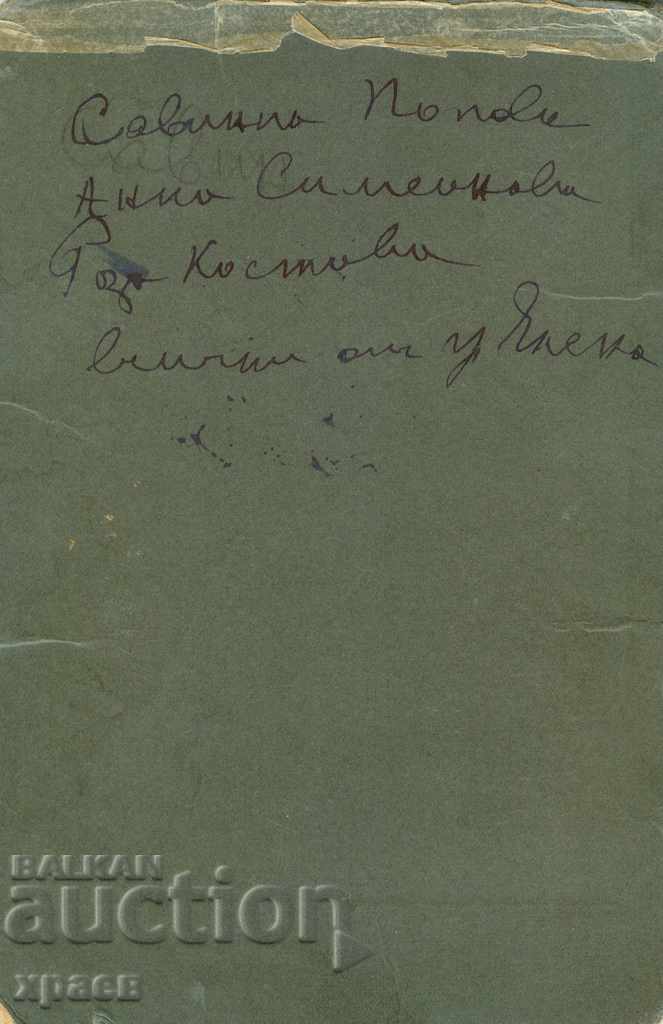 Савина Попова
Анна Симеонова
Роза Костова
всички от
BALKAN
auction
храев